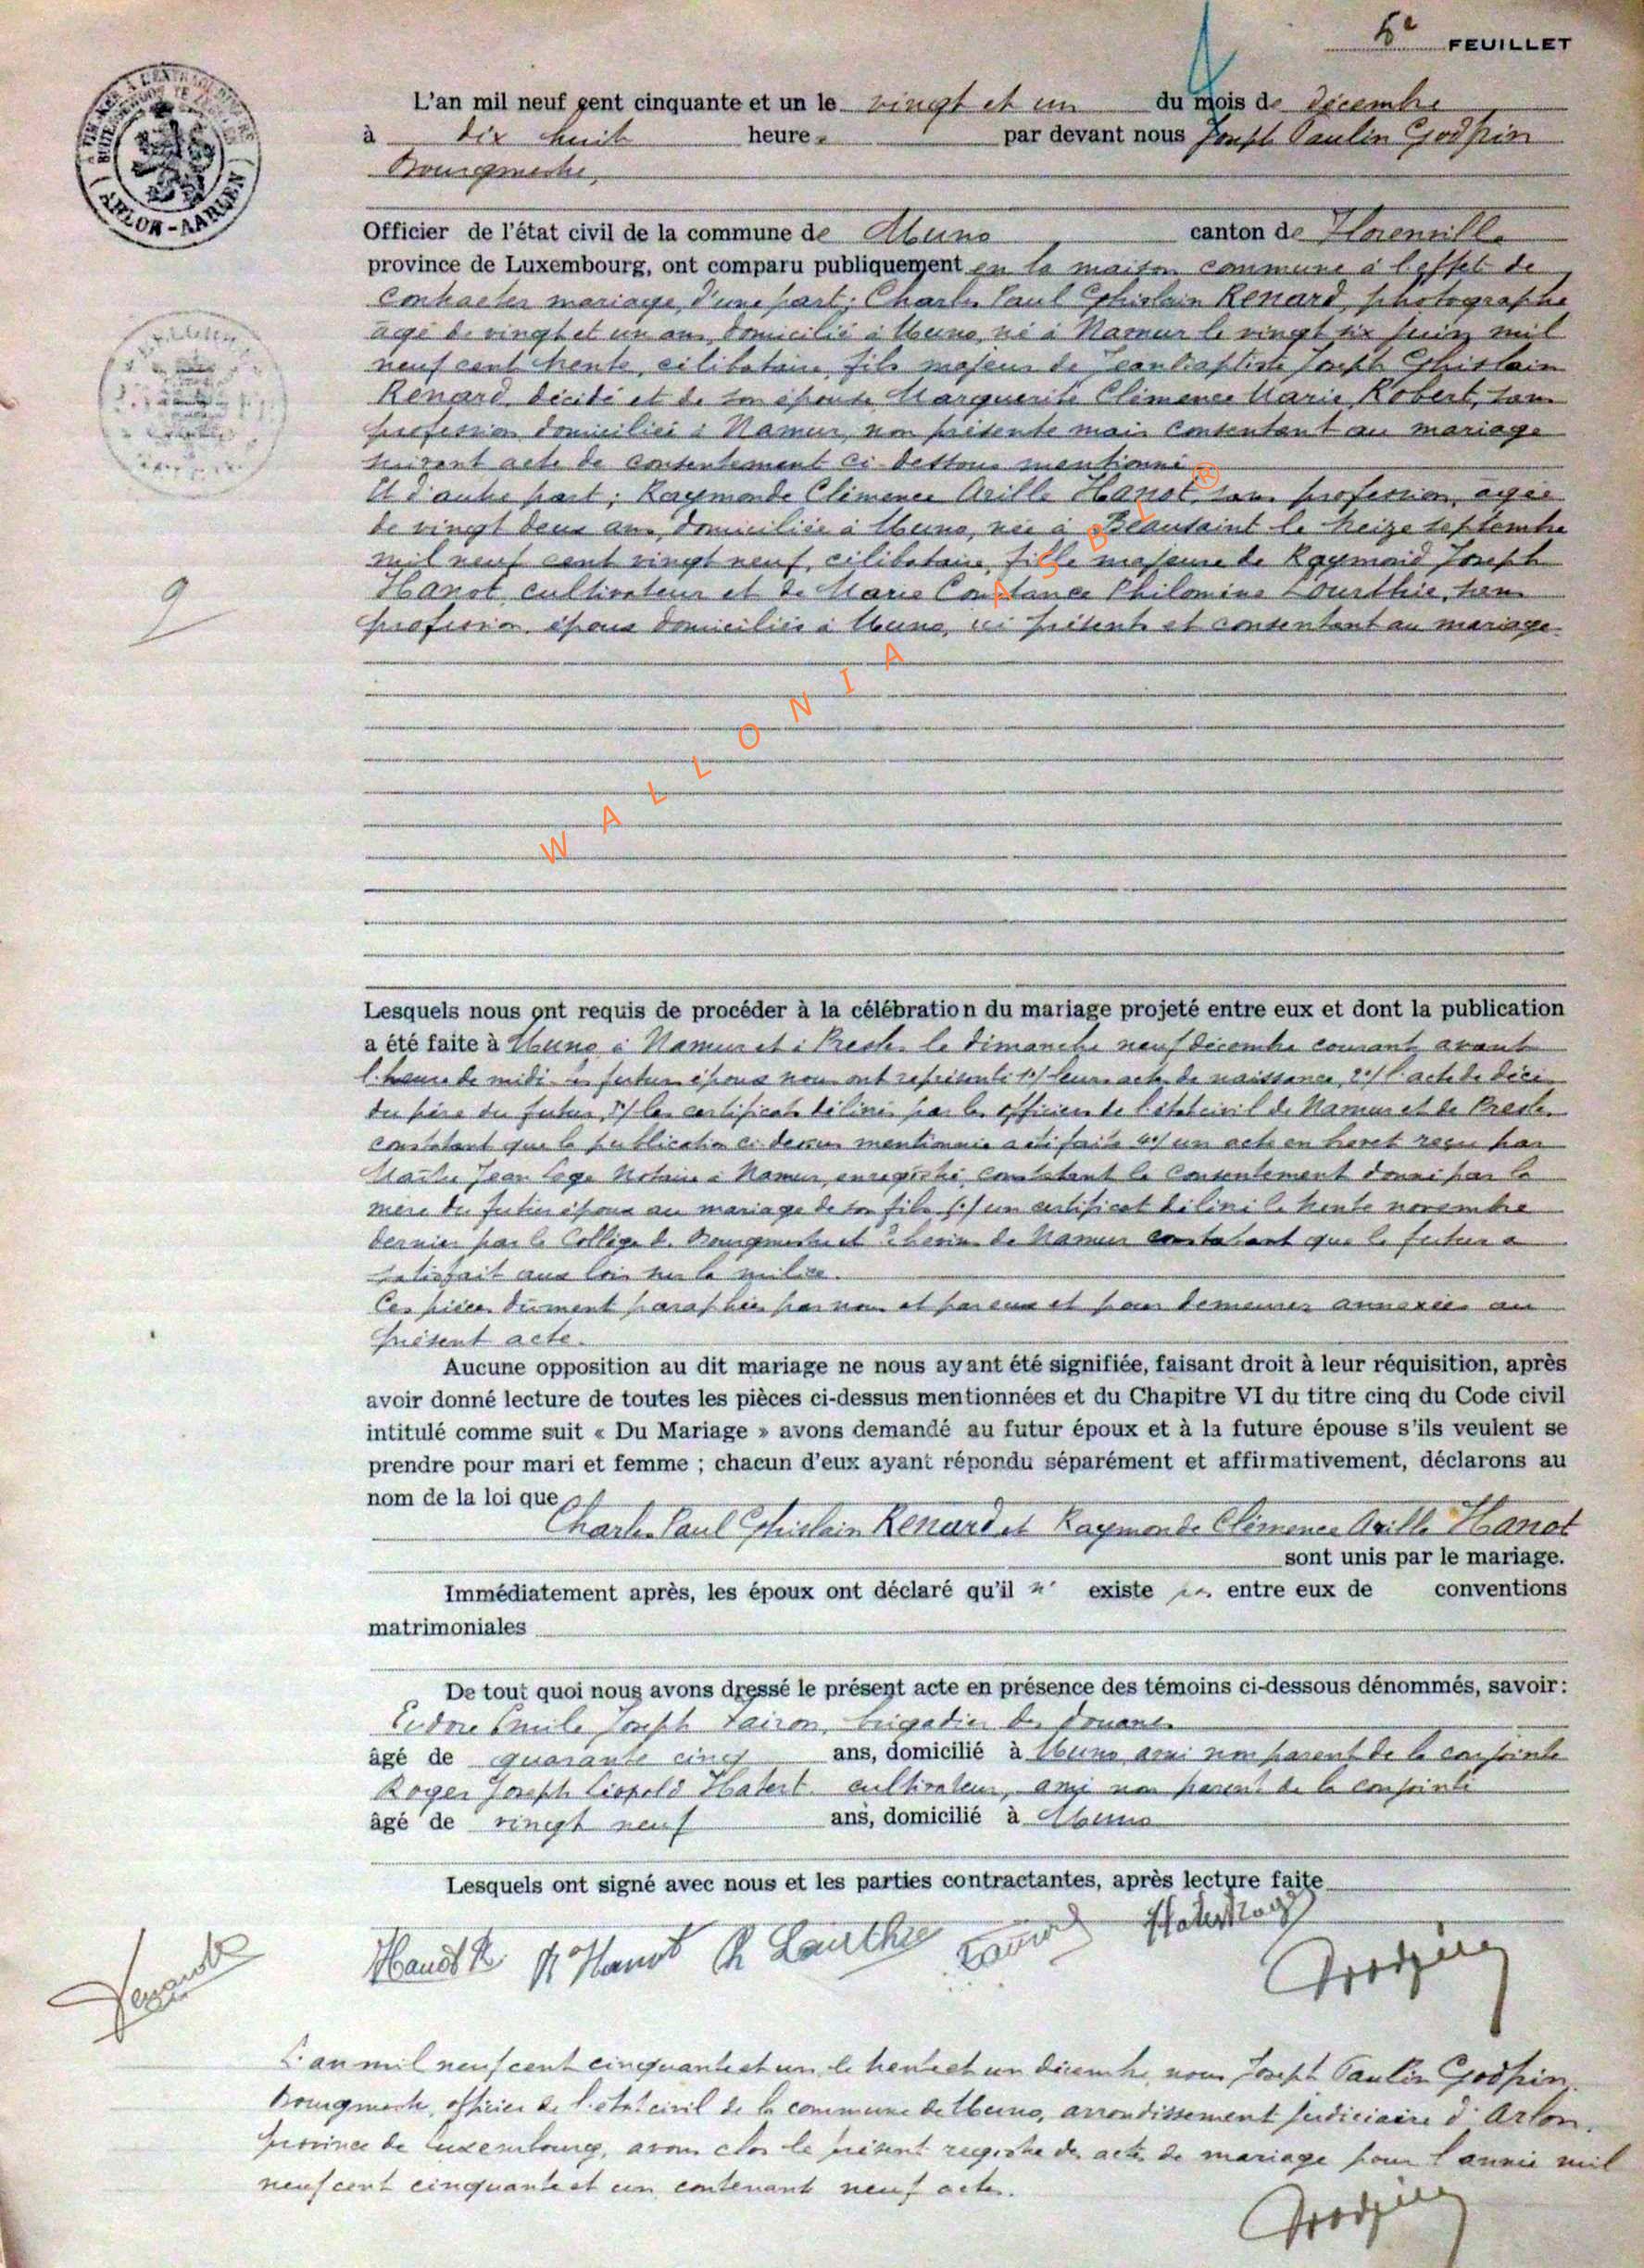 5e FEUILLET
L'an mil neuf cent cinquante et un le vingt et un du mois de décembre
à dix huit heures par devant nous Joseph Paulin Godfrin
Bourgmestre,
ARLON-AARLEN
Officier de l'état civil de la commune de Muno canton de Florenville
province de Luxembourg, ont comparu publiquement en la maison commune à l'effet de
contracter mariage, d'une part; Charles Paul Ghislain Renard, photographe
agé de vingt et un ans, domicilié à Muno, né à Namur le vingt six juin mil
neuf cent trente, célibataire, fils majeur de Jean Baptiste Joseph Ghislain
Renard, décédé et de son épouse Marguerite Clémence Marie Robert, sans
profession domiciliée à Namur, non présente mais consentant au mariage
suivant acte de consentement ci-dessous mentionné
Et d'autre part; Raymonde Clémence Azille Hanot, sans profession, agée
de vingt deux ans, domiciliée à Muno, née à Beausaint le treize septembre
mil neuf cent vingt neuf, célibataire, fille majeure de Raymond Joseph
9
Hanot, cultivateur et de Marie Constance Philomène Lourthie, sans
profession, époux domiciliés à Muno, ici présents et consentant au mariage.
WALLONIA ASBL ®
Lesquels nous ont requis de procéder à la célébration du mariage projeté entre eux et dont la publication
a été faite à Muno à Namur et à Presles le dimanche neuf décembre courant avant
l'heure de midi. Les futurs époux nous ont représenté 1°/ leurs actes de naissance, 2°/ l'acte de décès
du père du futur, 3°/ les certificats délivrés par les officiers de l'état civil de Namur et de Presles
constatant que la publication ci-dessus mentionnée a été faite 4°/ un acte en brevet reçu par
Maître Jean Loge Notaire à Namur, enregistré, constatant le consentement donné par la
mère du futur époux au mariage de son fils 5°/ un certificat délivré le trente novembre
dernier par le Collège des Bourgmestre et Échevins de Namur constatant que le futur a
satisfait aux lois sur la milice.
Ces pièces dûment paraphées par nous et par eux et pour demeurer annexées au
présent acte.
Aucune opposition au dit mariage ne nous ayant été signifiée, faisant droit à leur réquisition, après
avoir donné lecture de toutes les pièces ci-dessus mentionnées et du Chapitre VI du titre cinq du Code civil
intitulé comme suit « Du Mariage » avons demandé au futur époux et à la future épouse s'ils veulent se
prendre pour mari et femme ; chacun d'eux ayant répondu séparément et affirmativement, déclarons au
nom de la loi que
Charles Paul Ghislain Renard et Raymonde Clémence Azille Hanot
sont unis par le mariage.
Immédiatement après, les époux ont déclaré qu'il n' existe pas entre eux de conventions
matrimoniales
De tout quoi nous avons dressé le présent acte en présence des témoins ci-dessous dénommés, savoir :
Emile Joseph brigadier des douanes
âgé de quarante cinq ans, domicilié à Muno ami non parent de la conjointe
Roger Joseph Léopold Habert cultivateur, ami non parent de la conjointe
âgé de vingt neuf ans, domicilié à Muno
Lesquels ont signé avec nous et les parties contractantes, après lecture faite
Hanot R R Hanot Lourthie Godfrin
Renard
L'an mil neuf cent cinquante et un, le trente et un décembre, nous Joseph Paulin Godfrin,
Bourgmestre, officier de l'état civil de la commune de Muno, arrondissement judiciaire d'Arlon,
province de Luxembourg, avons clos le présent registre des actes de mariage pour l'année mil
neuf cent cinquante et un contenant neuf actes.
Godfrin